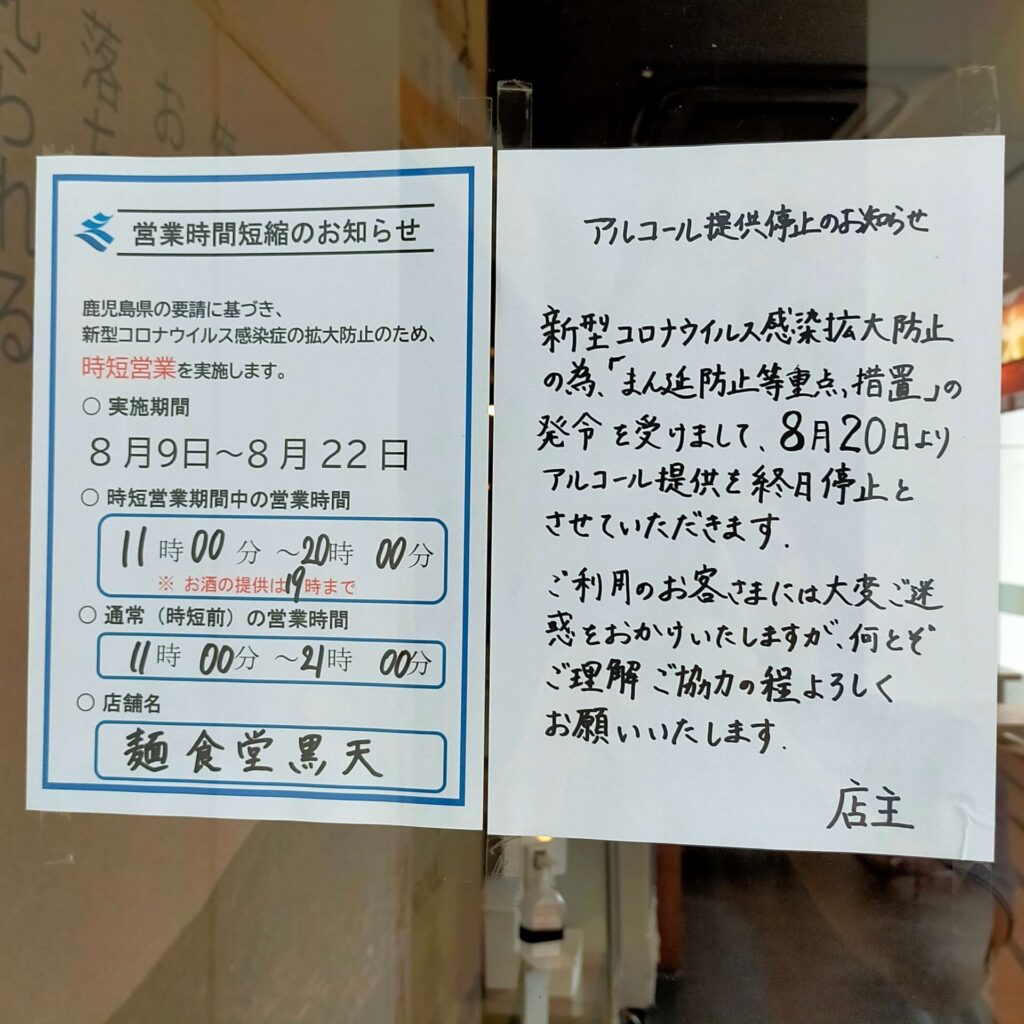 営業時間短縮のお知らせ
鹿児島県の要請に基づき、
新型コロナウイルス感染症の拡大防止のため、
時短営業を実施します。
○ 実施期間
8月9日～8月22日
○ 時短営業期間中の営業時間
11時00分～20時00分
※ お酒の提供は19時まで
○ 通常（時短前）の営業時間
11時00分～21時00分
○ 店舗名
麺食堂黒天
アルコール提供停止のお知らせ
新型コロナウイルス感染拡大防止
の為、「まん延防止等重点措置」の
発令を受けまして、8月20日より
アルコール提供を終日停止と
させていただきます.
ご利用のお客さまには大変ご迷
惑をおかけいたしますが、何とぞ
ご理解ご協力の程よろしく
お願いいたします.
店主